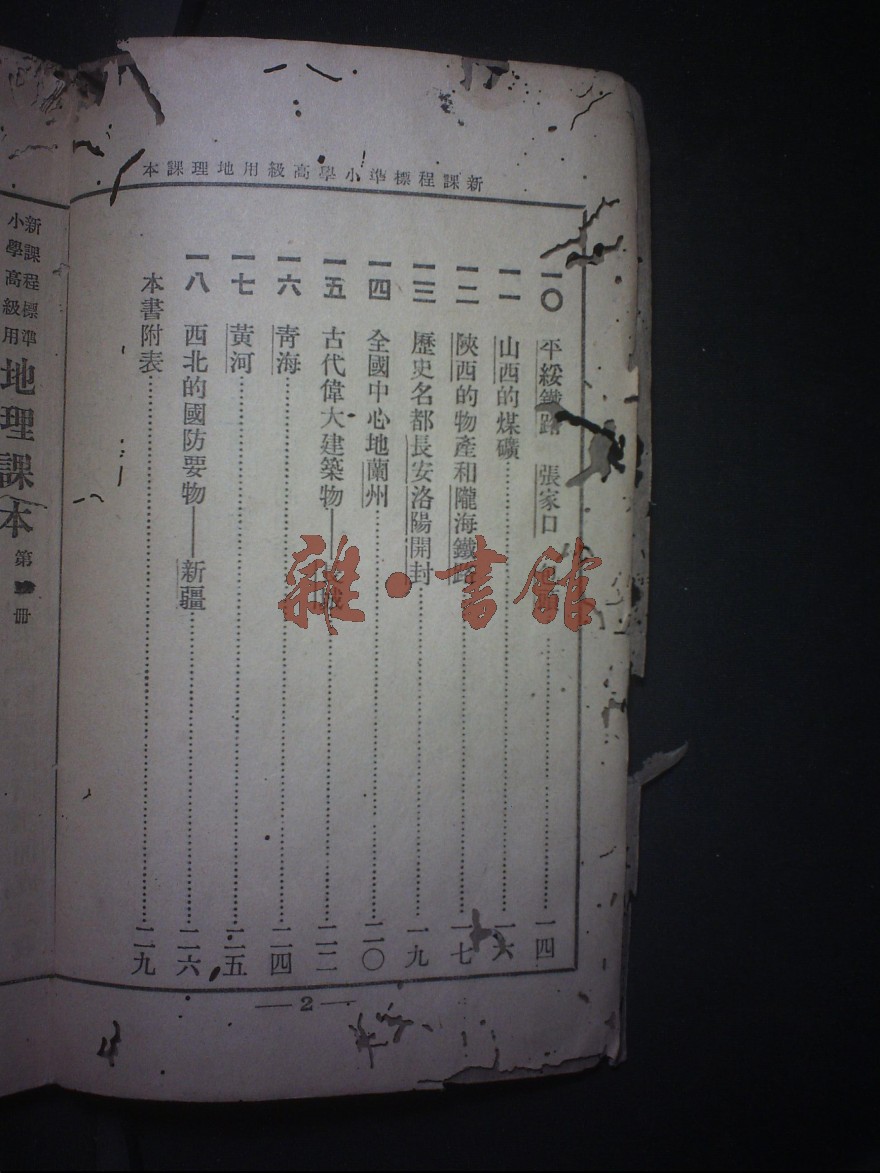 新課程標準小學高級用地理課本
一〇 平綏鐵路 張家口 一四
一一 山西的煤礦 一六
一二 陝西的物產和隴海鐵路 一七
一三 歷史名都長安洛陽開封 一九
一四 全國中心地蘭州 二〇
一五 古代偉大建築物—— 二二
一六 青海 二四
一七 黃河 二五
一八 西北的國防要物——新疆 二六
本書附表 二九
—2—
新課程標準
小學高級用
地理課本 第 冊
雜·書館